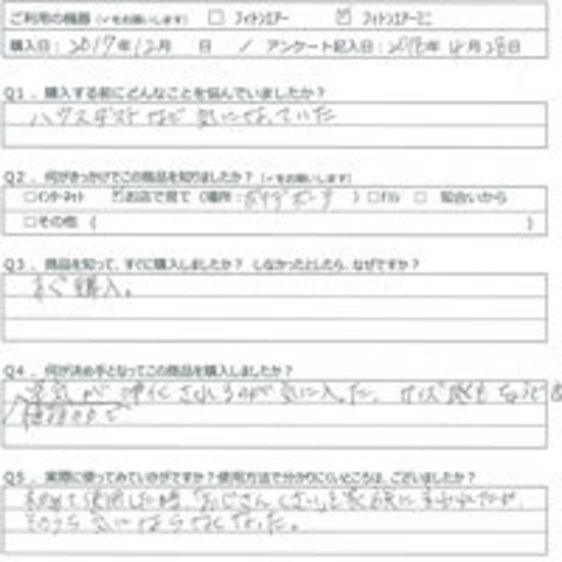 ご利用の機器（✓をお願いします） □ フィトンエアー ☑ フィトンエアーミニ
購入日：2017年12月　日 / アンケート記入日：2018年4月28日
Q1．購入する前にどんなことを悩んでいましたか？
ハウスダストなど気になっていた
Q2．何がきっかけでこの商品を知りましたか？（✓をお願いします）
□インターネット ☑お店で見て（場所： ）□チラシ □ 知合いから
□その他（ ）
Q3．商品を知って、すぐに購入しましたか？ しなかったとしたら、なぜですか？
すぐ購入。
Q4．何が決め手となってこの商品を購入しましたか？
空気が浄化されるのが気に入った。サイズ感も
Q5．実際に使ってみていかがですか？使用方法で分かりにくいところは、ございましたか？
初めて使用した時、「おじさんくさい」と家族に言われたが、
そのうち気にならなくなった。